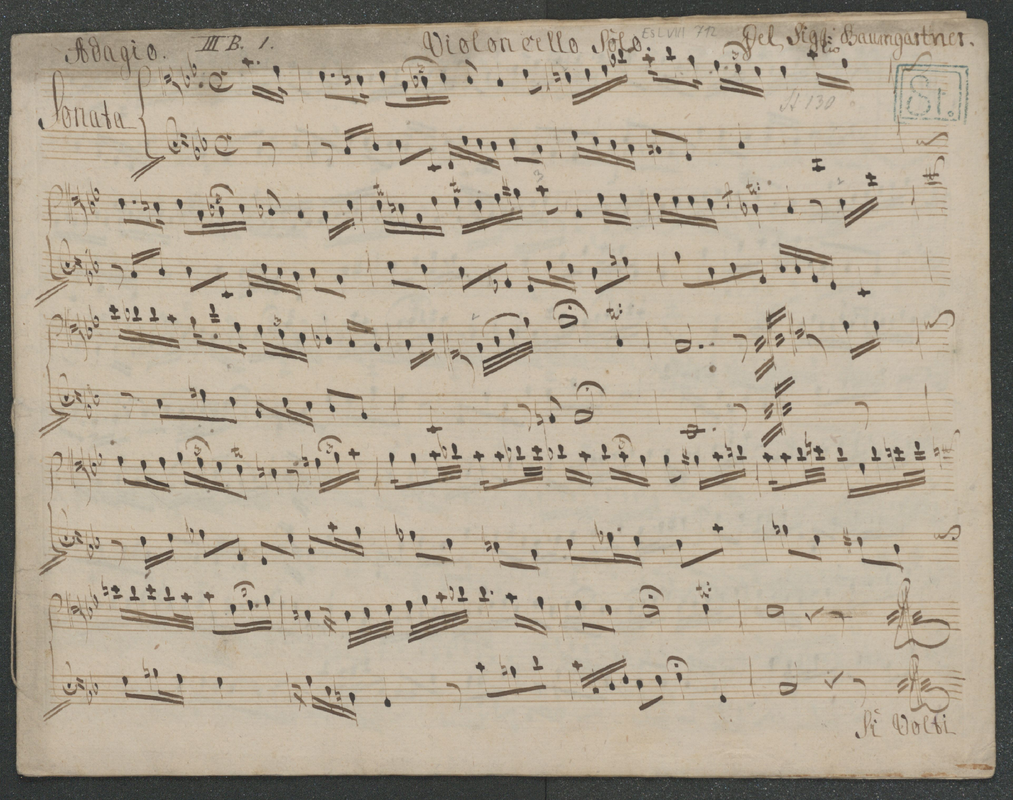 Adagio. III B. 1. Violoncello Solo. Es LVIII 712 Del Sigr: Baumgartner.
Sonata
St.
Si Volti